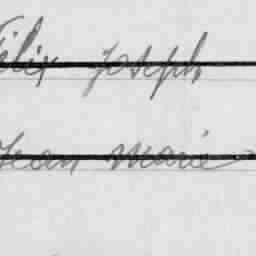 Félix Joseph
Jean Marie